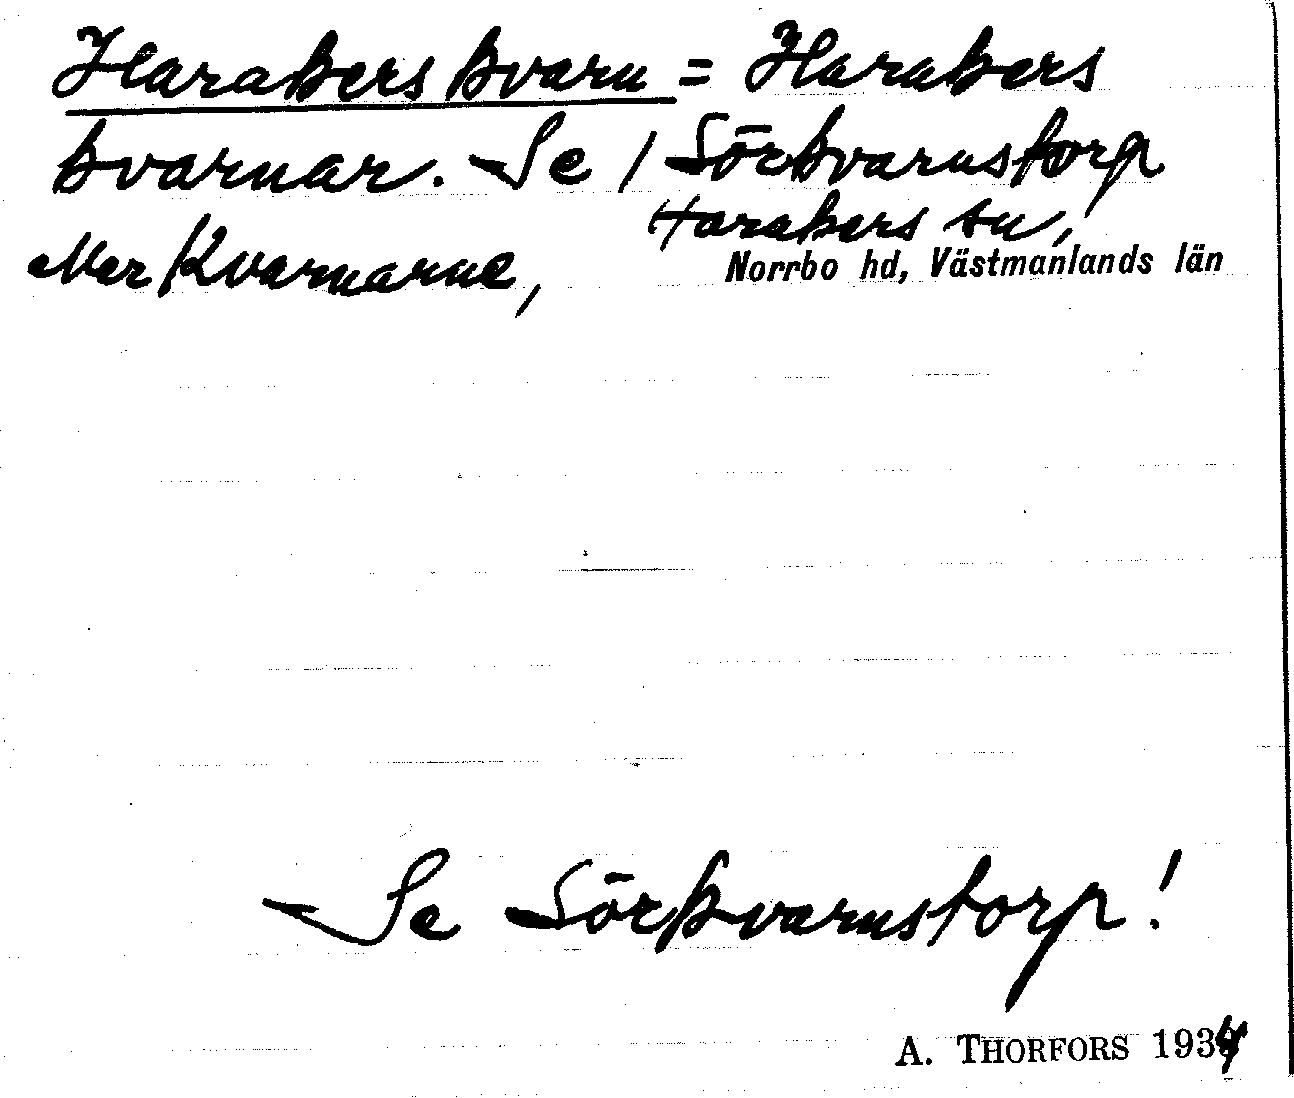 Harakers kvarn = Harakers
kvarnar. Se / Sörkvarnstorp
Harakers sn,
Mer Kvarnarne,
Norrbo hd, Västmanlands län
Se Sörkvarnstorp!
A. THORFORS 1934